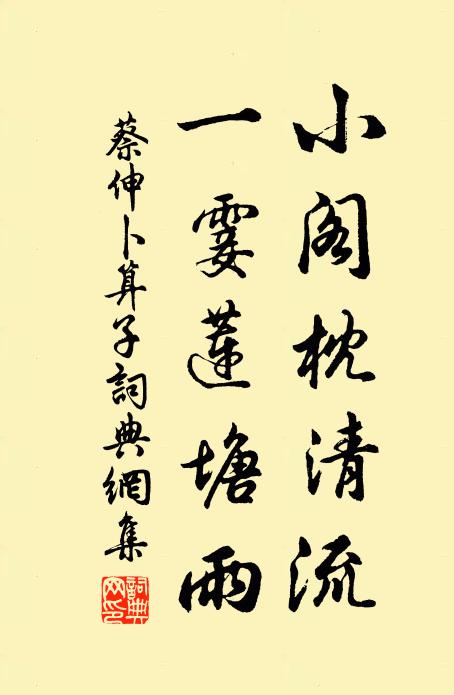 小阁枕清流
一霎蓮塘雨
蔡伸卜算子詞典網集
詞典网印